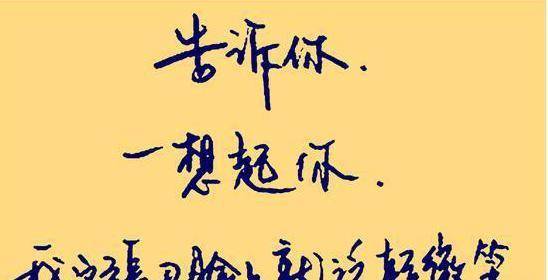 告诉你.
一想起你.
我这张丑脸上就泛起微笑